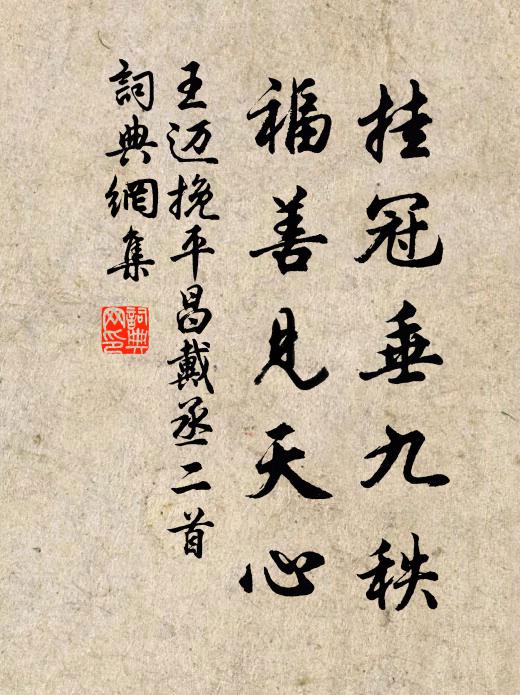 挂冠垂九秩
福善见天心
王迈挽平昌戴丞二首
词典网集
词典网印